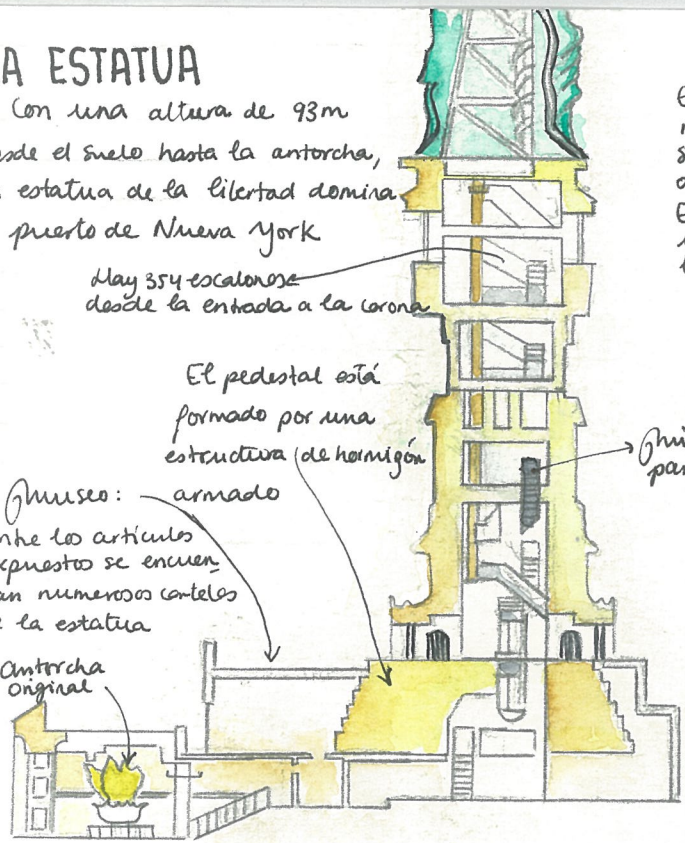 A ESTATUA
Con una altura de 93m
esde el suelo hasta la antorcha,
estatua de la libertad domina
puerto de Nueva York
Hay 354 escalones
desde la entrada a la corona
El pedestal está
formado por una
estructura de hormigón
armado
museo:
ntre los artículos
xpuestos se encuen
an numerosos carteles
la estatua
antorcha
original